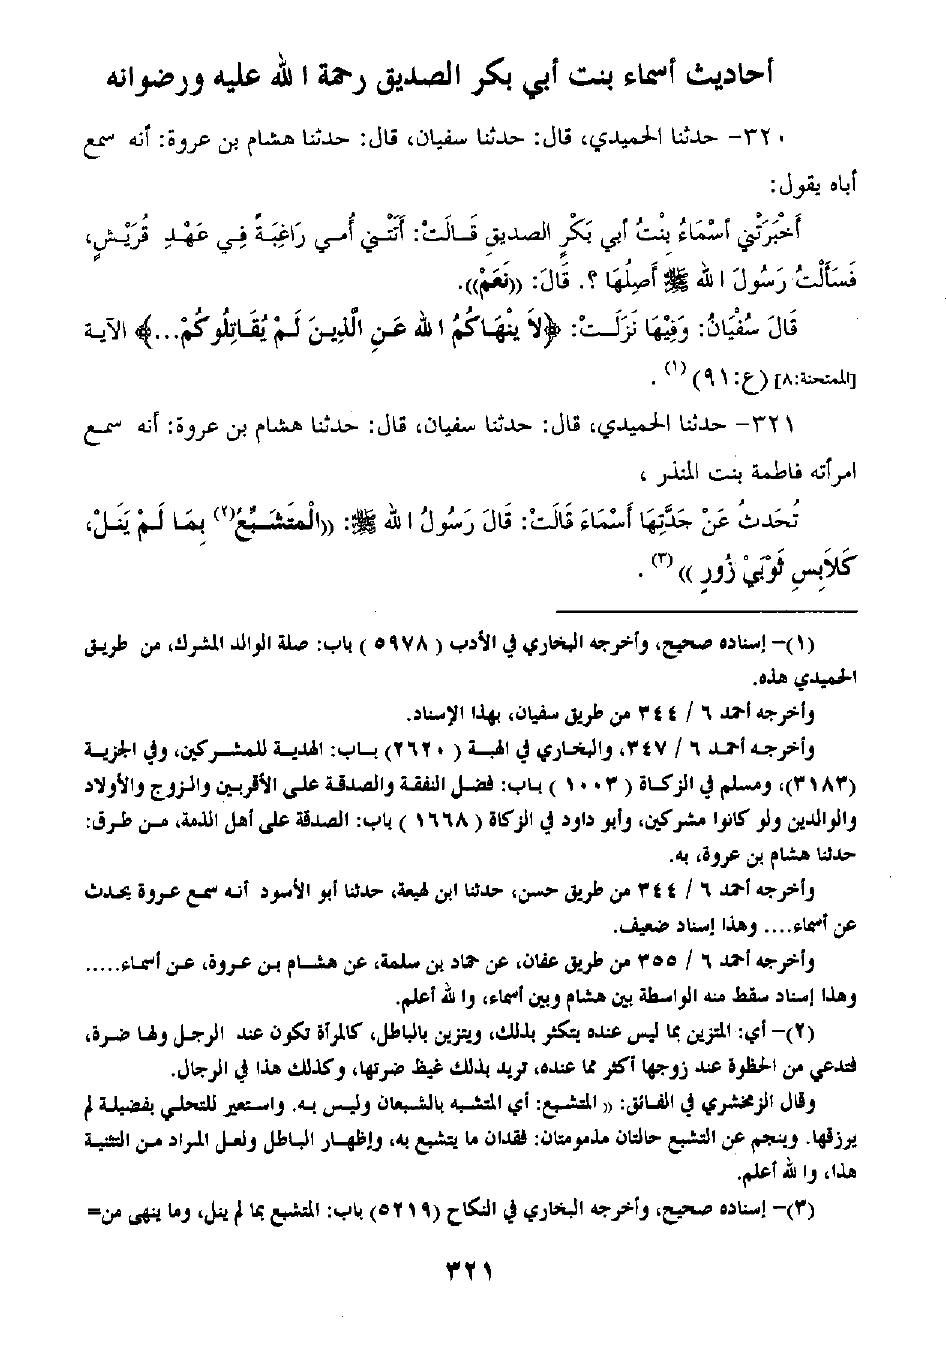 أحاديث أسماء بنت أبي بكر الصديق رحمة الله عليه ورضوانه
٣٢٠- حدثنا الحميدي، قال: حدثنا سفيان، قال: حدثنا هشام بن عروة: أنه سمع
أباه يقول:
أَخْبَرَتْنِي أَسْمَاءُ بِنْتُ أبي بَكْرٍ الصديقِ قَالَتْ: أَتَتْنِي أُمي رَاغِبَةً فِي عَهْدِ قُرَيْشٍ،
فَسَأَلْتُ رَسُولَ الله ﷺ أَصِلُهَا ؟. قَالَ: ((نَعَمْ)).
قَالَ سُفْيَانُ: وَفِيْهَا نَزَلَتْ: ﴿لاَ يَنْهَاكُمُ الله عَنِ الَّذِينَ لَمْ يُقَاتِلُوكُمْ...﴾ الآية
[الممتحنة:٨] (ع:٩١) (١) .
٣٢١- حدثنا الحميدي، قال: حدثنا سفيان، قال: حدثنا هشام بن عروة: أنه سمع
امرأته فاطمة بنت المنذر ،
تُحَدثُ عَنْ جَدَّتِهَا أَسْمَاءَ قَالَتْ: قَالَ رَسُولُ الله ﷺ: ((الْمُتَشَبِّعُ(٢) بِمَا لَمْ يَنَلْ،
كَلاَبِسِ ثَوْبَيْ زُورٍ )) (٣) .
(١)- إسناده صحيح، وأخرجه البخاري في الأدب ( ٥٩٧٨ ) باب: صلة الوالد المشرك، من طريق
الحميدي هذه.
وأخرجه أحمد ٦ / ٣٤٤ من طريق سفيان، بهذا الإسناد.
وأخرجه أحمد ٦ / ٣٤٧، والبخاري في الهبة ( ٢٦٢٠ ) باب: الهدية للمشركين، وفي الجزية
(٣١٨٣)، ومسلم في الزكاة ( ١٠٠٣ ) باب: فضل النفقة والصدقة على الأقربين والزوج والأولاد
والوالدين ولو كانوا مشركين، وأبو داود في الزكاة ( ١٦٦٨ ) باب: الصدقة على أهل الذمة، من طرق:
حدثنا هشام بن عروة، به.
وأخرجه أحمد ٦ / ٣٤٤ من طريق حسن، حدثنا ابن لهيعة، حدثنا أبو الأسود أنه سمع عروة يحدث
عن أسماء.... وهذا إسناد ضعيف.
وأخرجه أحمد ٦ / ٣٥٥ من طريق عفان، عن حماد بن سلمة، عن هشام بن عروة، عن أسماء.....
وهذا إسناد سقط منه الواسطة بين هشام وبين أسماء، والله أعلم.
(٢)- أي: المتزين بما ليس عنده يتكثر بذلك، ويتزين بالباطل، كالمرأة تكون عند الرجل ولها ضرة،
فتدعي من الحظوة عند زوجها أكثر مما عنده، تريد بذلك غيظ ضرتها، وكذلك هذا في الرجال.
وقال الزمخشري في الفائق: (( المتشبع: أي المتشبه بالشبعان وليس به. واستعير للتحلي بفضيلة لم
يرزقها. وينجم عن التشبع حالتان مذمومتان: فقدان ما يتشبع به، وإظهار الباطل ولعل المراد من التثنية
هذا، والله أعلم.
(٣)- إسناده صحيح، وأخرجه البخاري في النكاح (٥٢١٩) باب: المتشبع بما لم ينل، وما ينهى من=
٣٢١